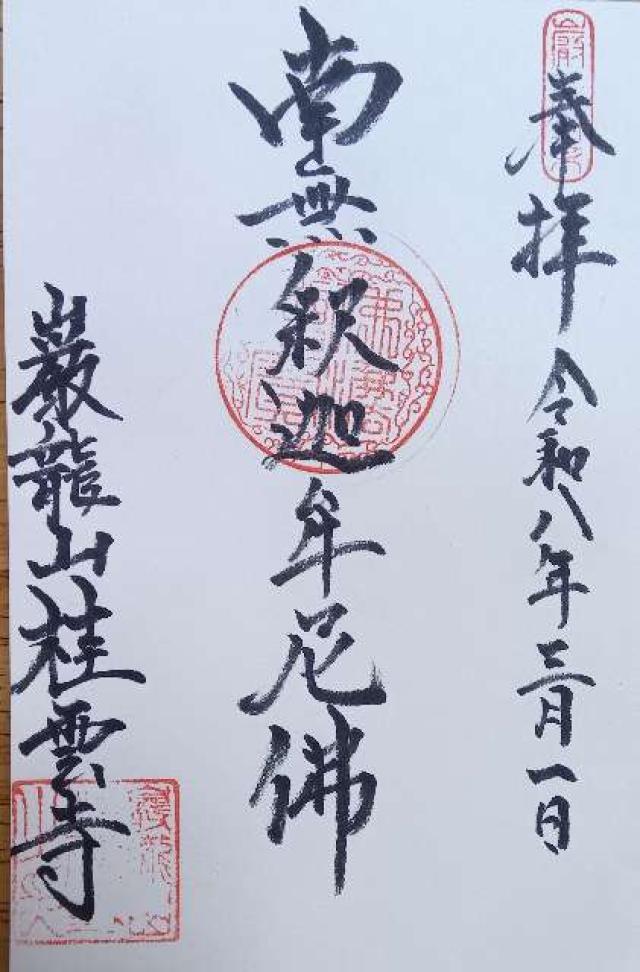 奉拝 令和八年三月一日
南無釈迦牟尼佛
巌龍山桂雲寺